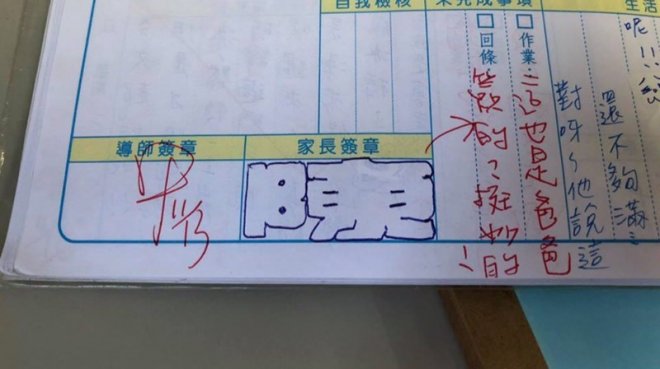 自我檢核
未完成事項
生活
□作業：
□回條
這也是爸爸
簽的？挺妙的！
對呀~他說這
還不夠滿
呢!!!
導師簽章
家長簽章
11/3